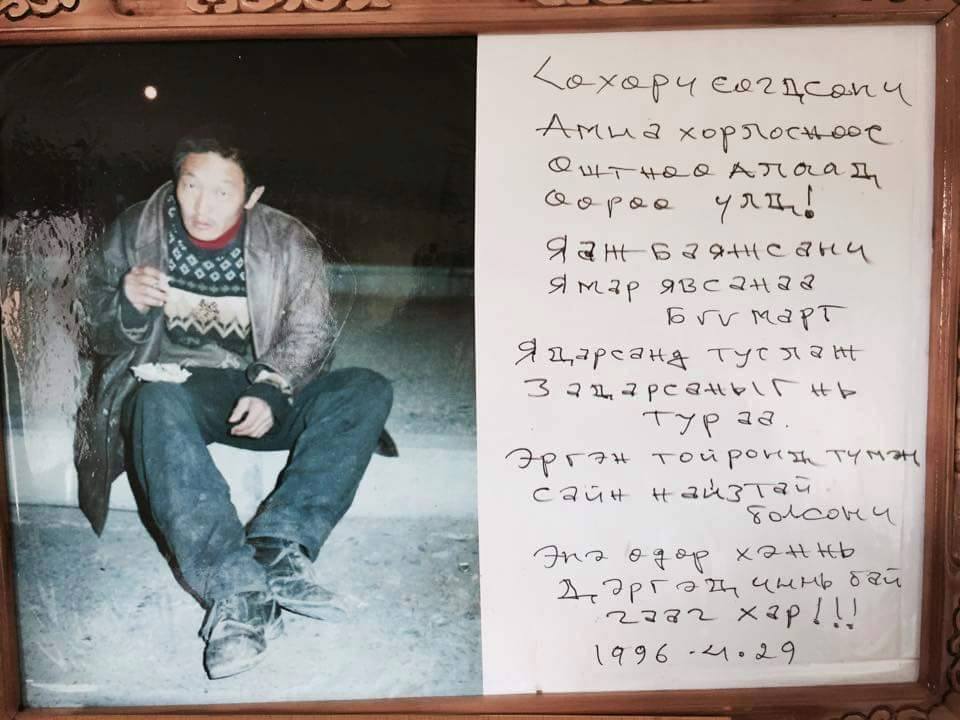 Сохорч согдсонч
Амиа хорлосноос
Өштнөө алаад
Өөрөө үлд!
Яаж баяжсанч
Ямар явсанаа
Бүү март
Ядарсанд туслаж
Задарсаныг нь
тураа.
Эргэн тойронд түмэн
сайн найзтай
болсонч
Энэ өдөр хэн нь
Дэргэд чинь бай
гааг хар!!!
1996.4.29